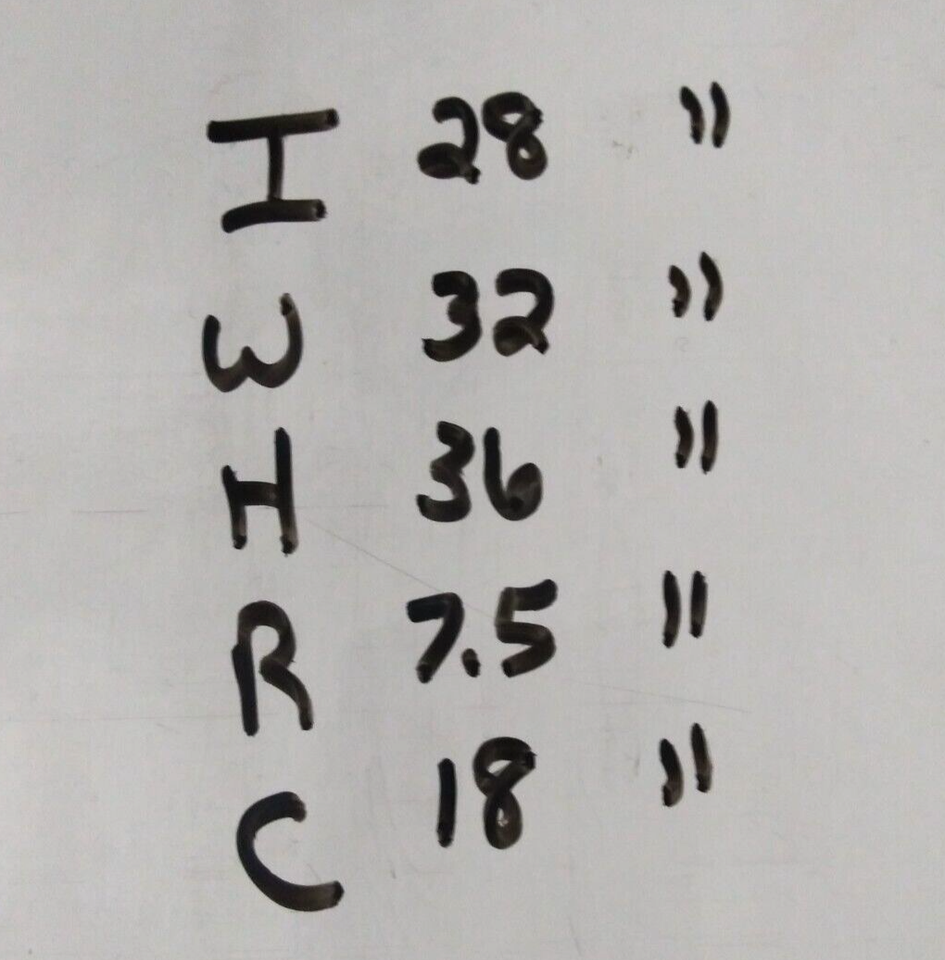 I 28 "
W 32 "
H 36 "
R 7.5 "
C 18 "